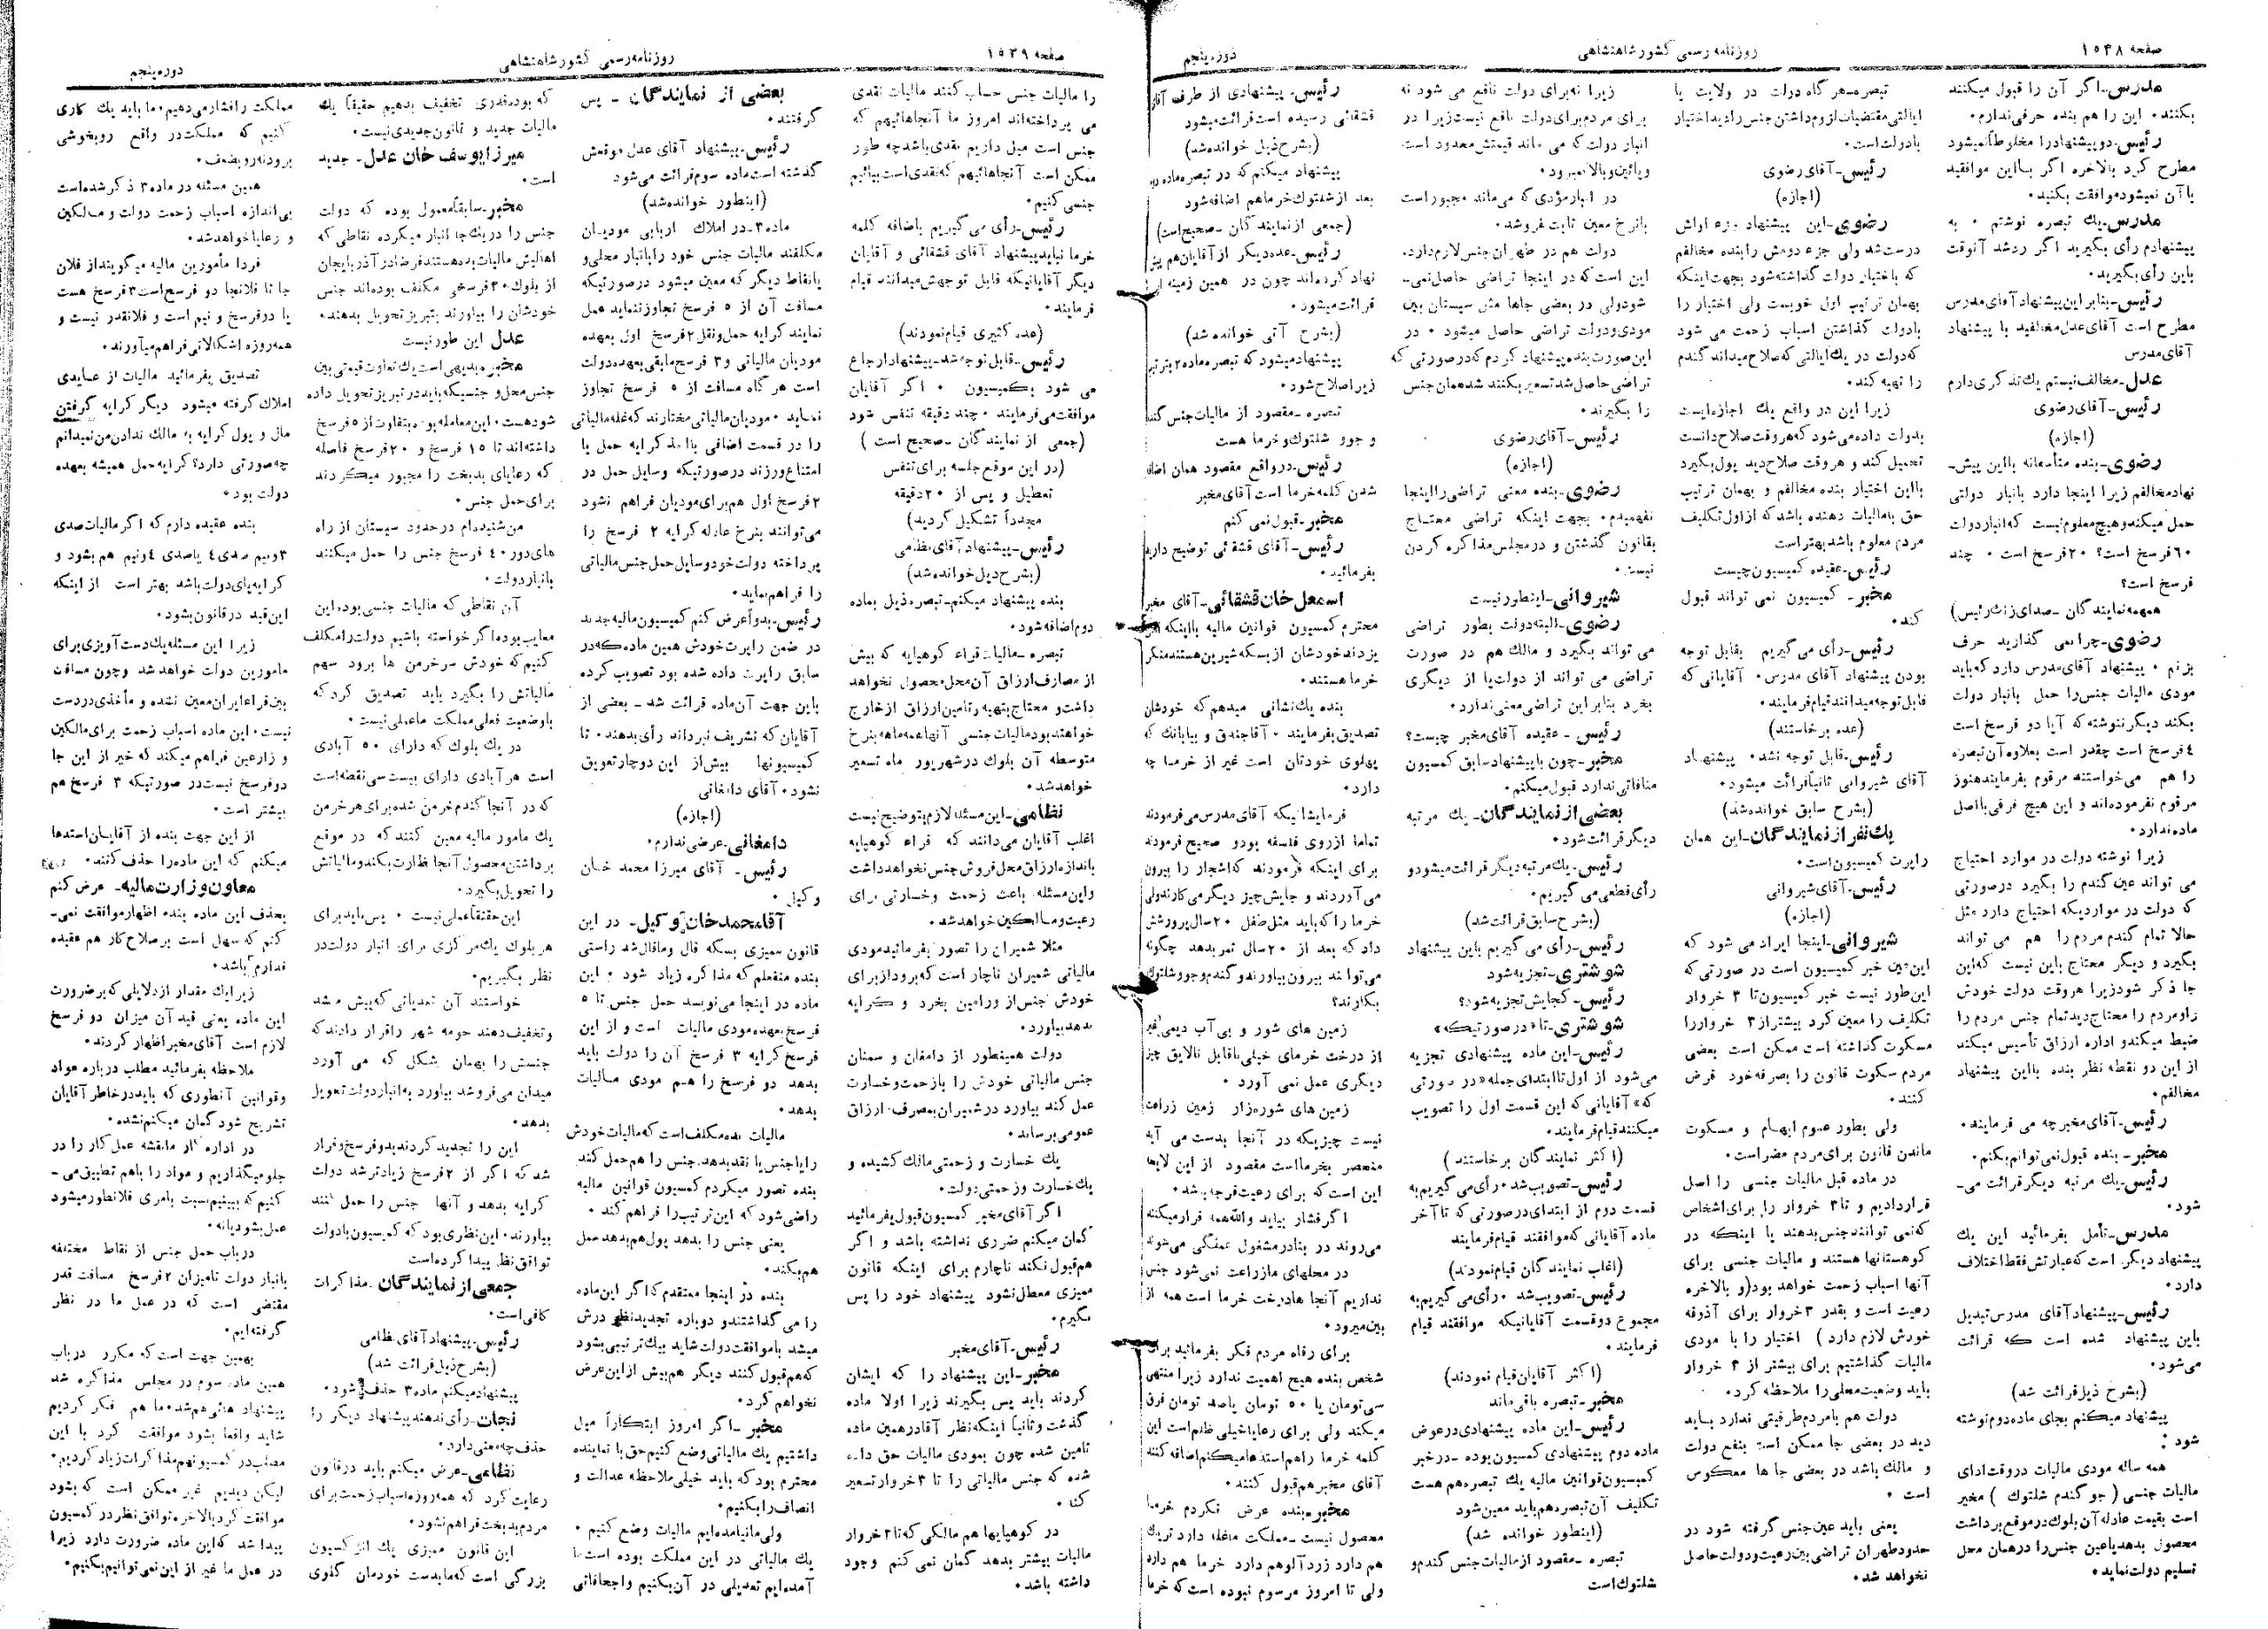 صفحه ۱۵۳۸
روزنامه رسمی کشور شاهنشاهی
دوره پنجم
مدرس - اگر آن را قبول میکنند
بکنند. این را هم بنده حرفی ندارم.
رئیس - دو پیشنهاد را مخلوطاً نمیشود
مطرح کرد بالاخره اگر با این موافقید
با آن نمیشود موافقت بکنید.
مدرس - یك تبصره نوشتم. به
پیشنهادم رأی بگیرید اگر رد شد آنوقت
باین رأی بگیرید.
رئیس - بنابراین پیشنهاد آقای مدرس
مطرح است آقای عدل مخالفید با پیشنهاد
آقای مدرس
عدل - مخالف نیستم یك تذکری دارم
رئیس - آقای رضوی
(اجازه)
رضوی - بنده متأسفانه با این پیش-
نهاد مخالفم زیرا اینجا دارد بانبار دولتی
حمل میکند و هیچ معلوم نیست که انبار دولت
۶۰ فرسخ است؟ ۲۰ فرسخ است. چند
فرسخ است؟
همهمه نمایندگان - صدای زنگ رئیس)
رضوی - چرا نمی گذارید حرف
بزنم. پیشنهاد آقای مدرس دارد که باید
مودی مالیات جنس را حمل بانبار دولت
بکند دیگر ننوشته که آیا دو فرسخ است
٤ فرسخ است چقدر است بعلاوه آن تبصره
را هم می‌خواستند مرقوم بفرمایند هنوز
مرقوم نفرموده‌اند و این هیچ فرقی با اصل
ماده ندارد.
زیرا نوشته دولت در موارد احتیاج
می تواند عین گندم را بگیرد در صورتی
که دولت در مواردیکه احتیاج دارد مثل
حالا تمام گندم مردم را هم می تواند
بگیرد و دیگر محتاج باین نیست که این
جا ذکر شود زیرا هر وقت دولت خودش
را و مردم را محتاج دید تمام جنس مردم را
ضبط میکند و اداره ارزاق تأسیس میکند
از این دو نقطه نظر بنده با این پیشنهاد
مخالفم.
رئیس - آقای مخبر چه می فرمایند.
مخبر - بنده قبول نمی توانم بکنم.
رئیس - یك مرتبه دیگر قرائت می-
شود.
مدرس - تأمل بفرمائید این یك
پیشنهاد دیگر است که عبارتش فقط اختلاف
دارد.
رئیس - پیشنهاد آقای مدرس تبدیل
باین پیشنهاد شده است که قرائت
می‌شود.
(بشرح ذیل قرائت شد)
پیشنهاد میکنم بجای ماده دوم نوشته
شود:
همه ساله مودی مالیات در وقت ادای
مالیات جنسی (جو گندم شلتوك) مخیر
است بقیمت عادله آن بلوك در موقع برداشت
محصول بدهد یا عین جنس را در همان محل
تسلیم دولت نماید.
تبصره - هر گاه دولت در ولایت یا
ایالتی مقتضیات لزوم داشتن جنس را دید اختیار
با دولت است.
رئیس - آقای رضوی
(اجازه)
رضوی - این پیشنهاد جزء اولش
درست شد ولی جزء دومش را بنده مخالفم
که باختیار دولت گذاشته شود بجهت اینکه
بهمان ترتیب اول خوبست ولی اختیار را
بادولت گذاشتن اسباب زحمت می شود
که دولت در یك ایالتی که صلاح میداند گندم
را تهیه کند.
زیرا این در واقع یك اجازه‌ایست
بدولت داده می‌شود که هر وقت صلاح دانست
تحمیل کند و هر وقت صلاح دید پول بگیرد
با این اختیار بنده مخالفم و بهمان ترتیب
حق با مالیات دهنده باشد که از اول تکلیف
مردم معلوم باشد بهتر است
رئیس - عقیده کمیسیون چیست
مخبر - کمیسیون نمی تواند قبول
کند.
رئیس - رأی می گیریم بقابل توجه
بودن پیشنهاد آقای مدرس. آقایانی که
قابل توجه میدانند قیام فرمایند.
(عده برخاستند)
رئیس - قابل توجه نشد. پیشنهاد
آقای شیروانی ثانیاً قرائت میشود.
(بشرح سابق خوانده شد)
یك نفر از نمایندگان - این همان
راپرت کمیسیون است.
رئیس - آقای شیروانی
(اجازه)
شیروانی - اینجا ایراد می شود که
این عین خبر کمیسیون است در صورتی که
این طور نیست خبر کمیسیون تا ۳ خروار
تکلیف را معین کرد بیشتر از ۳ خروار را
مسکوت گذاشته است ممکن است بعضی
مردم سکوت قانون را بصرفه خود فرض
کنند.
ولی بطور عموم ابهام و مسکوت
ماندن قانون برای مردم مضر است.
در ماده قبل مالیات جنسی را اصل
قرار دادیم و تا ۳ خروار را برای اشخاص
که نمی توانند جنس بدهند یا اینکه در
کوهستانها هستند و مالیات جنسی برای
آنها اسباب زحمت خواهد بود (و بالاخره
رعیت است و بقدر ۳ خروار برای آذوقه
خودش لازم دارد) اختیار را با مودی
مالیات گذاشتیم برای بیشتر از ۳ خروار
باید وضعیت محلی را ملاحظه کرد.
دولت هم با مردم طرفیتی ندارد باید
دید در بعضی جا ممکن است بنفع دولت
و مالك باشد در بعضی جا ها معکوس
است.
یعنی باید عین جنس گرفته شود در
حدود طهران تراضی بین رعیت و دولت حاصل
نخواهد شد.
زیرا نه برای دولت نافع می شود نه
برای مردم برای دولت نافع نیست زیرا در
انبار دولت که می ماند قیمتش محدود است
و پائین و بالا نمیرود.
در انبار مؤدی که می‌ماند مجبور است
بانرخ معین ثابت فروشد.
دولت هم در طهران جنس لازم دارد.
این است که در اینجا تراضی حاصل نمی-
شود ولی در بعضی جاها مثل سیستان بین
مودی و دولت تراضی حاصل میشود. در
این صورت بنده پیشنهاد کردم که در صورتی که
تراضی حاصل شد تسعیر بکنند شد همان جنس
را بگیرند.
رئیس - آقای رضوی
(اجازه)
رضوی - بنده معنی تراضی را اینجا
نفهمیدم. بجهت اینکه تراضی محتاج
بقانون گذشتن و در مجلس مذاکره کردن
نیست.
شیروانی - اینطور نیست
رضوی - البته دولت بطور تراضی
می تواند بگیرد و مالك هم در صورت
تراضی می تواند از دولت یا از دیگری
بخرد بنابراین تراضی معنی ندارد.
رئیس - عقیده آقای مخبر چیست؟
مخبر - چون با پیشنهاد سابق کمیسیون
منافاتی ندارد قبول میکنم.
بعضی از نمایندگان - یك مرتبه
دیگر قرائت شود.
رئیس - یك مرتبه دیگر قرائت میشود و
رأی قطعی می گیریم.
(بشرح سابق قرائت شد)
رئیس - رأی می گیریم باین پیشنهاد
شوشتری - تجزیه شود
رئیس - کجایش تجزیه شود؟
شوشتری - تا «در صورتیکه»
رئیس - این ماده پیشنهادی تجزیه
می‌شود از اول تا ابتدای جمله «در صورتی
که» آقایانی که این قسمت اول را تصویب
میکنند قیام فرمایند.
(اکثر نمایندگان برخاستند)
رئیس - تصویب شد. رأی می گیریم به
قسمت دوم از ابتدای در صورتی که تا آخر
ماده آقایانی که موافقند قیام فرمایند
(اغلب نمایندگان قیام نمودند)
رئیس - تصویب شد. رأی می گیریم به
مجموع دو قسمت آقایانیکه موافقند قیام
فرمایند.
(اکثر آقایان قیام نمودند)
مخبر - تبصره باقی ماند
رئیس - این ماده پیشنهادی در عوض
ماده دوم پیشنهادی کمیسیون بوده - در خبر
کمیسیون قوانین مالیه یك تبصره هم هست
تکلیف آن تبصره هم باید معین شود
(اینطور خوانده شد)
تبصره - مقصود از مالیات جنس گندم و
شلتوك است
رئیس - پیشنهادی از طرف آقای
قشقائی رسیده است قرائت میشود
(بشرح ذیل خوانده شد)
پیشنهاد میکنم که در تبصره ماده دوم
بعد از شلتوك خرما هم اضافه شود
(جمعی از نمایندگان - صحیح است)
رئیس - عده دیگر از آقایان هم پیش
نهاد کرده‌اند چون در همین زمینه است
قرائت میشود.
(بشرح آتی خوانده شد)
پیشنهاد میشود که تبصره ماده ۲ بترتیب
زیر اصلاح شود.
تبصره - مقصود از مالیات جنس گندم
و جو و شلتوك و خرما هست
رئیس - در واقع مقصود همان اضافه
شدن کلمه خرما است آقای مخبر
مخبر - قبول نمی کنم
رئیس - آقای قشقائی توضیح دارید
بفرمائید.
اسمعیل خان قشقائی - آقای مخبر
محترم کمسیون قوانین مالیه با اینکه اهل
یزدند خودشان از بسکه شیرین هستند منکر
خرما هستند.
بنده یك نشانی میدهم که خودشان
تصدیق بفرمایند. آقا جندق و بیابانك که
پهلوی خودتان است غیر از خرما چه
دارد.
فرمایشاتیکه آقای مدرس می فرمودند
تماماً از روی فلسفه بود و صحیح فرمودند
برای اینکه فرمودند که اشجار را بیرون
می آوردند و جایش چیز دیگر می کارند ولی
خرما را که باید مثل طفل ۲۰ سال پرورش
داد که بعد از ۲۰ سال ثمر بدهد چگونه
می‌توانند بیرون بیاورند و گندم و جو و شلتوك
بکارند؟
زمین های شور و بی آب دیمی غیر
از درخت خرمای خیلی ناقابل نالایق چیز
دیگری عمل نمی آورد.
زمین های شوره‌زار زمین زراعت
نیست چیزیکه در آنجا بدست می آید
منحصر بخرما است مقصود از این لایحه
این است که برای رعیت فرجه باشد.
اگر فشار بیاید والله همه فرار میکنند
می‌روند در بنادر مشغول عملگی می‌شوند
در محلهای ما زراعت نمی‌شود جنس
نداریم آنجا ها درخت خرما است همه از
بین میرود.
برای رفاه مردم فکر بفرمائید برای
شخص بنده هیچ اهمیت ندارد زیرا منتهی
سی تومان یا ۵۰ تومان یا صد تومان فرق
میکند ولی برای رعایا خیلی ظلم است این
کلمه خرما را هم استدعا میکنم اضافه کنند
آقای مخبر هم قبول کنند.
مخبر - بنده عرض نکردم خرما
محصول نیست - مملکت ما غله دارد تریاك
هم دارد زردآلو هم دارد خرما هم دارد
ولی تا امروز مرسوم نبوده است که خرما
صفحه ۱۵۳۹
روزنامه رسمی کشور شاهنشاهی
دوره پنجم
را مالیات جنس حساب کنند مالیات نقدی
می پرداخته‌اند امروز ما آنجاهائیهم که
جنس است میل داریم نقدی باشد چه طور
ممکن است آنجاهائیهم که نقدی است بیائیم
جنسی کنیم.
رئیس - رأی می گیریم باضافه کلمه
خرما نباید پیشنهاد آقای قشقائی و آقایان
دیگر آقایانیکه قابل توجهش میدانند قیام
فرمایند.
(عده کثیری قیام نمودند)
رئیس - قابل توجه شد - پیشنهاد ارجاع
می شود بکمیسیون. اگر آقایان
موافقت می فرمایند. چند دقیقه تنفس شود
(جمعی از نمایندگان - صحیح است)
(در این موقع جلسه برای تنفس
تعطیل و پس از ۲۰ دقیقه
مجدداً تشکیل گردید)
رئیس - پیشنهاد آقای نظامی
(بشرح ذیل خوانده شد)
بنده پیشنهاد میکنم - تبصره ذیل بماده
دوم اضافه شود.
تبصره - مالیات قراء کوهپایه که بیش
از مصارف ارزاق آن محل محصول نخواهد
داشت و محتاج بتهیه و تأمین ارزاق از خارج
خواهند بود مالیات جنسی آنها همه ماهه بنرخ
متوسطه آن بلوك در شهریور ماه تسعیر
خواهد شد.
نظامی - این مسئله لازم بتوضیح نیست
اغلب آقایان می‌دانند که قراء کوهپایه
باندازه ارزاق محل فروش جنس نخواهد داشت
و این مسئله باعث زحمت و خسارتی برای
رعیت و مالکین خواهد شد.
مثلا شمیران را تصور بفرمائید مودی
مالیاتی شمیران ناچار است که برود از برای
خودش جنس از ورامین بخرد و کرایه
بدهد بیاورد.
دولت همینطور از دامغان و سمنان
جنس مالیاتی خودش را با زحمت و خسارت
عمل کند بیاورد در شمیران بمصرف ارزاق
عمومی برساند.
یك خسارت و زحمتی مالك کشیده و
یك خسارت و زحمتی دولت.
اگر آقای مخبر کمسیون قبول بفرمائید
گمان میکنم ضرری نداشته باشد و اگر
هم قبول نکند ناچارم برای اینکه قانون
ممیزی معطل نشود پیشنهاد خود را پس
بگیرم.
رئیس - آقای مخبر
مخبر - این پیشنهاد را که ایشان
کردند باید پس بگیرند زیرا اولا ماده
گذشت و ثانیاً اینکه نظر آقا در همین ماده
تامین شده چون بمودی مالیات حق داده
شده که جنس مالیاتی را تا ۳ خروار تسعیر
کند.
در کوهپایها هم مالکی که تا ۳ خروار
مالیات بیشتر بدهد گمان نمی کنم وجود
داشته باشد.
بعضی از نمایندگان - پس
گرفتند.
رئیس - پیشنهاد آقای عدل موقعش
گذشته است ماده سوم قرائت می شود
(اینطور خوانده شد)
ماده ۳ - در املاك اربابی مودیان
مکلفند مالیات جنس خود را بانبار محلی و
یا نقاط دیگر که معین میشود در صورتیکه
مسافت آن از ۵ فرسخ تجاوز ننماید عمل
نمایند کرایه حمل و نقل ۲ فرسخ اول بعهده
مودیان مالیاتی و ۳ فرسخ مابقی بعهده دولت
است هر گاه مسافت از ۵ فرسخ تجاوز
نماید. مودیان مالیاتی مختارند که غله مالیاتی
را در قسمت اضافی با اخذ کرایه حمل یا
امتناع ورزند در صورتیکه وسایل حمل در
۲ فرسخ اول هم برای مودیان فراهم نشود
می‌توانند بنرخ عادله کرایه ۲ فرسخ را
پرداخته دولت خود وسایل حمل جنس مالیاتی
را فراهم نماید.
رئیس - بدواً عرض کنم کمیسیون مالیه جدید
در ضمن راپرت خودش همین ماده که در
سابق راپرت داده شده بود تصویب کرده
باین جهت آن ماده قرائت شد - بعضی از
آقایان که تشریف نبرداند رأی بدهند. تا
کمیسیونها بیش از این دوچار تعویق
نشود. آقای دامغانی
(اجازه)
دامغانی - عرضی ندارم.
رئیس - آقای میرزا محمد خان
وکیل.
آقا محمد خان وکیل - در این
قانون ممیزی بسکه قال و مقال شد راستی
بنده منفعلم که مذاکره زیاد شود. این
ماده در اینجا می‌نویسد حمل جنس تا ۵
فرسخ بعهده مودی مالیات است و از این
فرسخ کرایه ۳ فرسخ آن را دولت باید
بدهد دو فرسخ را هم مودی مالیات
بدهد.
مالیات بده مکلف است که مالیات خودش
را یا جنس یا نقد بدهد. جنس را هم حمل کند
بنده تصور میکردم کمسیون قوانین مالیه
راضی شود که این ترتیب را فراهم کند.
یعنی جنس را بدهد پول هم بدهد حمل
هم بکند.
بنده در اینجا معتقدم که اگر این ماده
را می گذاشتند و دوباره تجدید نظر درش
میشد با موافقت دولت شاید بیك ترتیبی بشود
که هم قبول کنند دیگر هم بیش از این عرض
نخواهم کرد.
مخبر - اگر امروز ابتکاراً میل
داشتیم یك مالیاتی وضع کنیم حق با نماینده
محترم بود که باید خیلی ملاحظه عدالت و
انصاف را بکنیم.
ولی ما نیامده‌ایم مالیات وضع کنیم.
یك مالیاتی در این مملکت بوده است ما
آمده‌ایم تعدیلی در آن بکنیم و اجحافاتی
که بوده قدری تخفیف بدهیم حقیقتاً یك
مالیات جدید و قانون جدیدی نیست.
میرزا یوسف خان عدل - جدید
است.
مخبر - سابقاً معمول بوده که دولت
جنس را در یك جا انبار میکرده نقاطی که
اهالیش مالیات بده هستند فرضا در آذربایجان
از بلوك ۲۰ فرسخی مکلف بوده‌اند جنس
خودشان را بیاورند بتبریز تحویل بدهند.
عدل این طور نیست
مخبر - بدیهی است یك تفاوت قیمتی بین
جنس محل و جنسیکه باید در تبریز تحویل داده
شود هست. این معامله بوده بتفاوت از ۵ فرسخ
داشته‌اند تا ۱۵ فرسخ و ۲۰ فرسخ فاصله
که رعایای بدبخت را مجبور میکردند
برای حمل جنس.
من شنیده‌ام در حدود سیستان از راه
های دور ۴۰ فرسخ جنس را حمل میکنند
بانبار دولت.
آن نقاطی که مالیات جنسی بوده این
معایب بوده اگر خواسته باشیم دولت را مکلف
کنیم که خودش سر خرمن ها برود سهم
مالیاتش را بگیرد باید تصدیق کرد که
با وضعیت فعلی مملکت ما عملی نیست.
در یك بلوك که دارای ۵۰ آبادی
است هر آبادی دارای بیست سی نقطه است
که در آنجا گندم خرمن شده برای هر خرمن
یك مامور مالیه معین کنند که در موقع
برداشتن محصول آنجا نظارت بکند و مالیاتش
را تحویل بگیرد.
این حقیقتاً عملی نیست. پس باید برای
هر بلوك یك مرکزی برای انبار دولت در
نظر بگیریم.
خواستند آن تعدیاتی که پیش میشد
و تخفیف دهند حومه شهر را قرار دادند که
جنسش را بهمان شکل که می آورد
میدان می فروشد بیاورد به انبار دولت تحویل
بدهد.
این را تجدید کردند بدو فرسخ و قرار
شد که اگر از ۲ فرسخ زیادتر شد دولت
کرایه بدهد و آنها جنس را حمل کنند
بیاورند. این نظری بود که کمیسیون با دولت
توافق نظر پیدا کرده است
جمعی از نمایندگان - مذاکرات
کافی است.
رئیس - پیشنهاد آقای نظامی
(بشرح ذیل قرائت شد)
پیشنهاد میکنم ماده ۳ حذف شود.
نجات - رأی ندهند پیشنهاد دیگر را
حذف چه معنی دارد.
نظامی - عرض میکنم باید در قانون
رعایت کرد که همه روزه اسباب زحمت برای
مردم بدبخت فراهم نشود.
این قانون ممیزی یك انرکسیون
بزرگی است که ما بدست خودمان گلوی
مملکت را فشار می‌دهیم. ما باید یك کاری
کنیم که مملکت در واقع رو بخوشی
برود نه رو بضعف.
همین مسئله در ماده ۳ ذکر شده است
بی‌اندازه اسباب زحمت دولت و مالکین
و رعایا خواهد شد.
فردا مأمورین مالیه میگویند از فلان
جا تا فلانجا دو فرسخ است ۳ فرسخ هست
یا دو فرسخ و نیم است و فلانقدر نیست و
همه روزه اشکالاتی فراهم میآورند.
تصدیق بفرمائید مالیات از عایدی
املاك گرفته میشود دیگر کرایه گرفتن
مال و پول کرایه به مالك ندادن من نمیدانم
چه صورتی دارد؟ کرایه حمل همیشه بعهده
دولت بود.
بنده عقیده دارم که اگر مالیات صدی
۳ و نیم صدی ٤ یا صدی ٤ و نیم هم بشود و
کرایه پای دولت باشد بهتر است از اینکه
این قید در قانون بشود.
زیرا این مسئله یك دست آویزی برای
مامورین دولت خواهد شد و چون مسافت
بین قراء ایران معین نشده و مأخذی در دست
نیست. این ماده اسباب زحمت برای مالکین
و زارعین فراهم میکند که خیر از این جا
دو فرسخ نیست در صورتیکه ۳ فرسخ هم
بیشتر است.
از این جهت بنده از آقایان استدعا
میکنم که این ماده را حذف کنند.
معاون وزارت مالیه - عرض کنم
بحذف این ماده بنده اظهار موافقت نمی-
کنم که سهل است بر صلاح کار هم عقیده
ندارم باشد.
زیرا یك مقدار از دلایلی که بر ضرورت
این ماده یعنی قید آن میزان دو فرسخ
لازم است آقای مخبر اظهار کردند.
ملاحظه بفرمائید مطلب درباره مواد
و قوانین آنطوری که باید در خاطر آقایان
تشریح شود گمان میکنم نشده.
در اداره کار مناقشه عمل کار را در
جلو میگذاریم و مواد را باهم تطبیق می-
کنیم که ببینیم نسبت بامری فلانطور میشود
عمل بشود یا نه.
در باب حمل جنس از نقاط مختلفه
بانبار دولت تا میزان ۲ فرسخ مسافت قدر
مقتضی است که در عمل ما در نظر
گرفته‌ایم.
بهمین جهت است که مکرر در باب
همین ماده سوم در مجلس مذاکره شد
پیشنهاد هائی هم شد. ما هم فکر کردیم
شاید واقعاً بشود موافقت کرد با این
مطلب در کمیسیون هم مذاکرات زیاد کردیم.
لیکن دیدیم غیر ممکن است که بشود
موافقت کرد بالاخره توافق نظر در کمسیون
پیدا شد که این ماده ضرورت دارد زیرا
در عمل ما غیر از این نمی توانیم بکنیم.